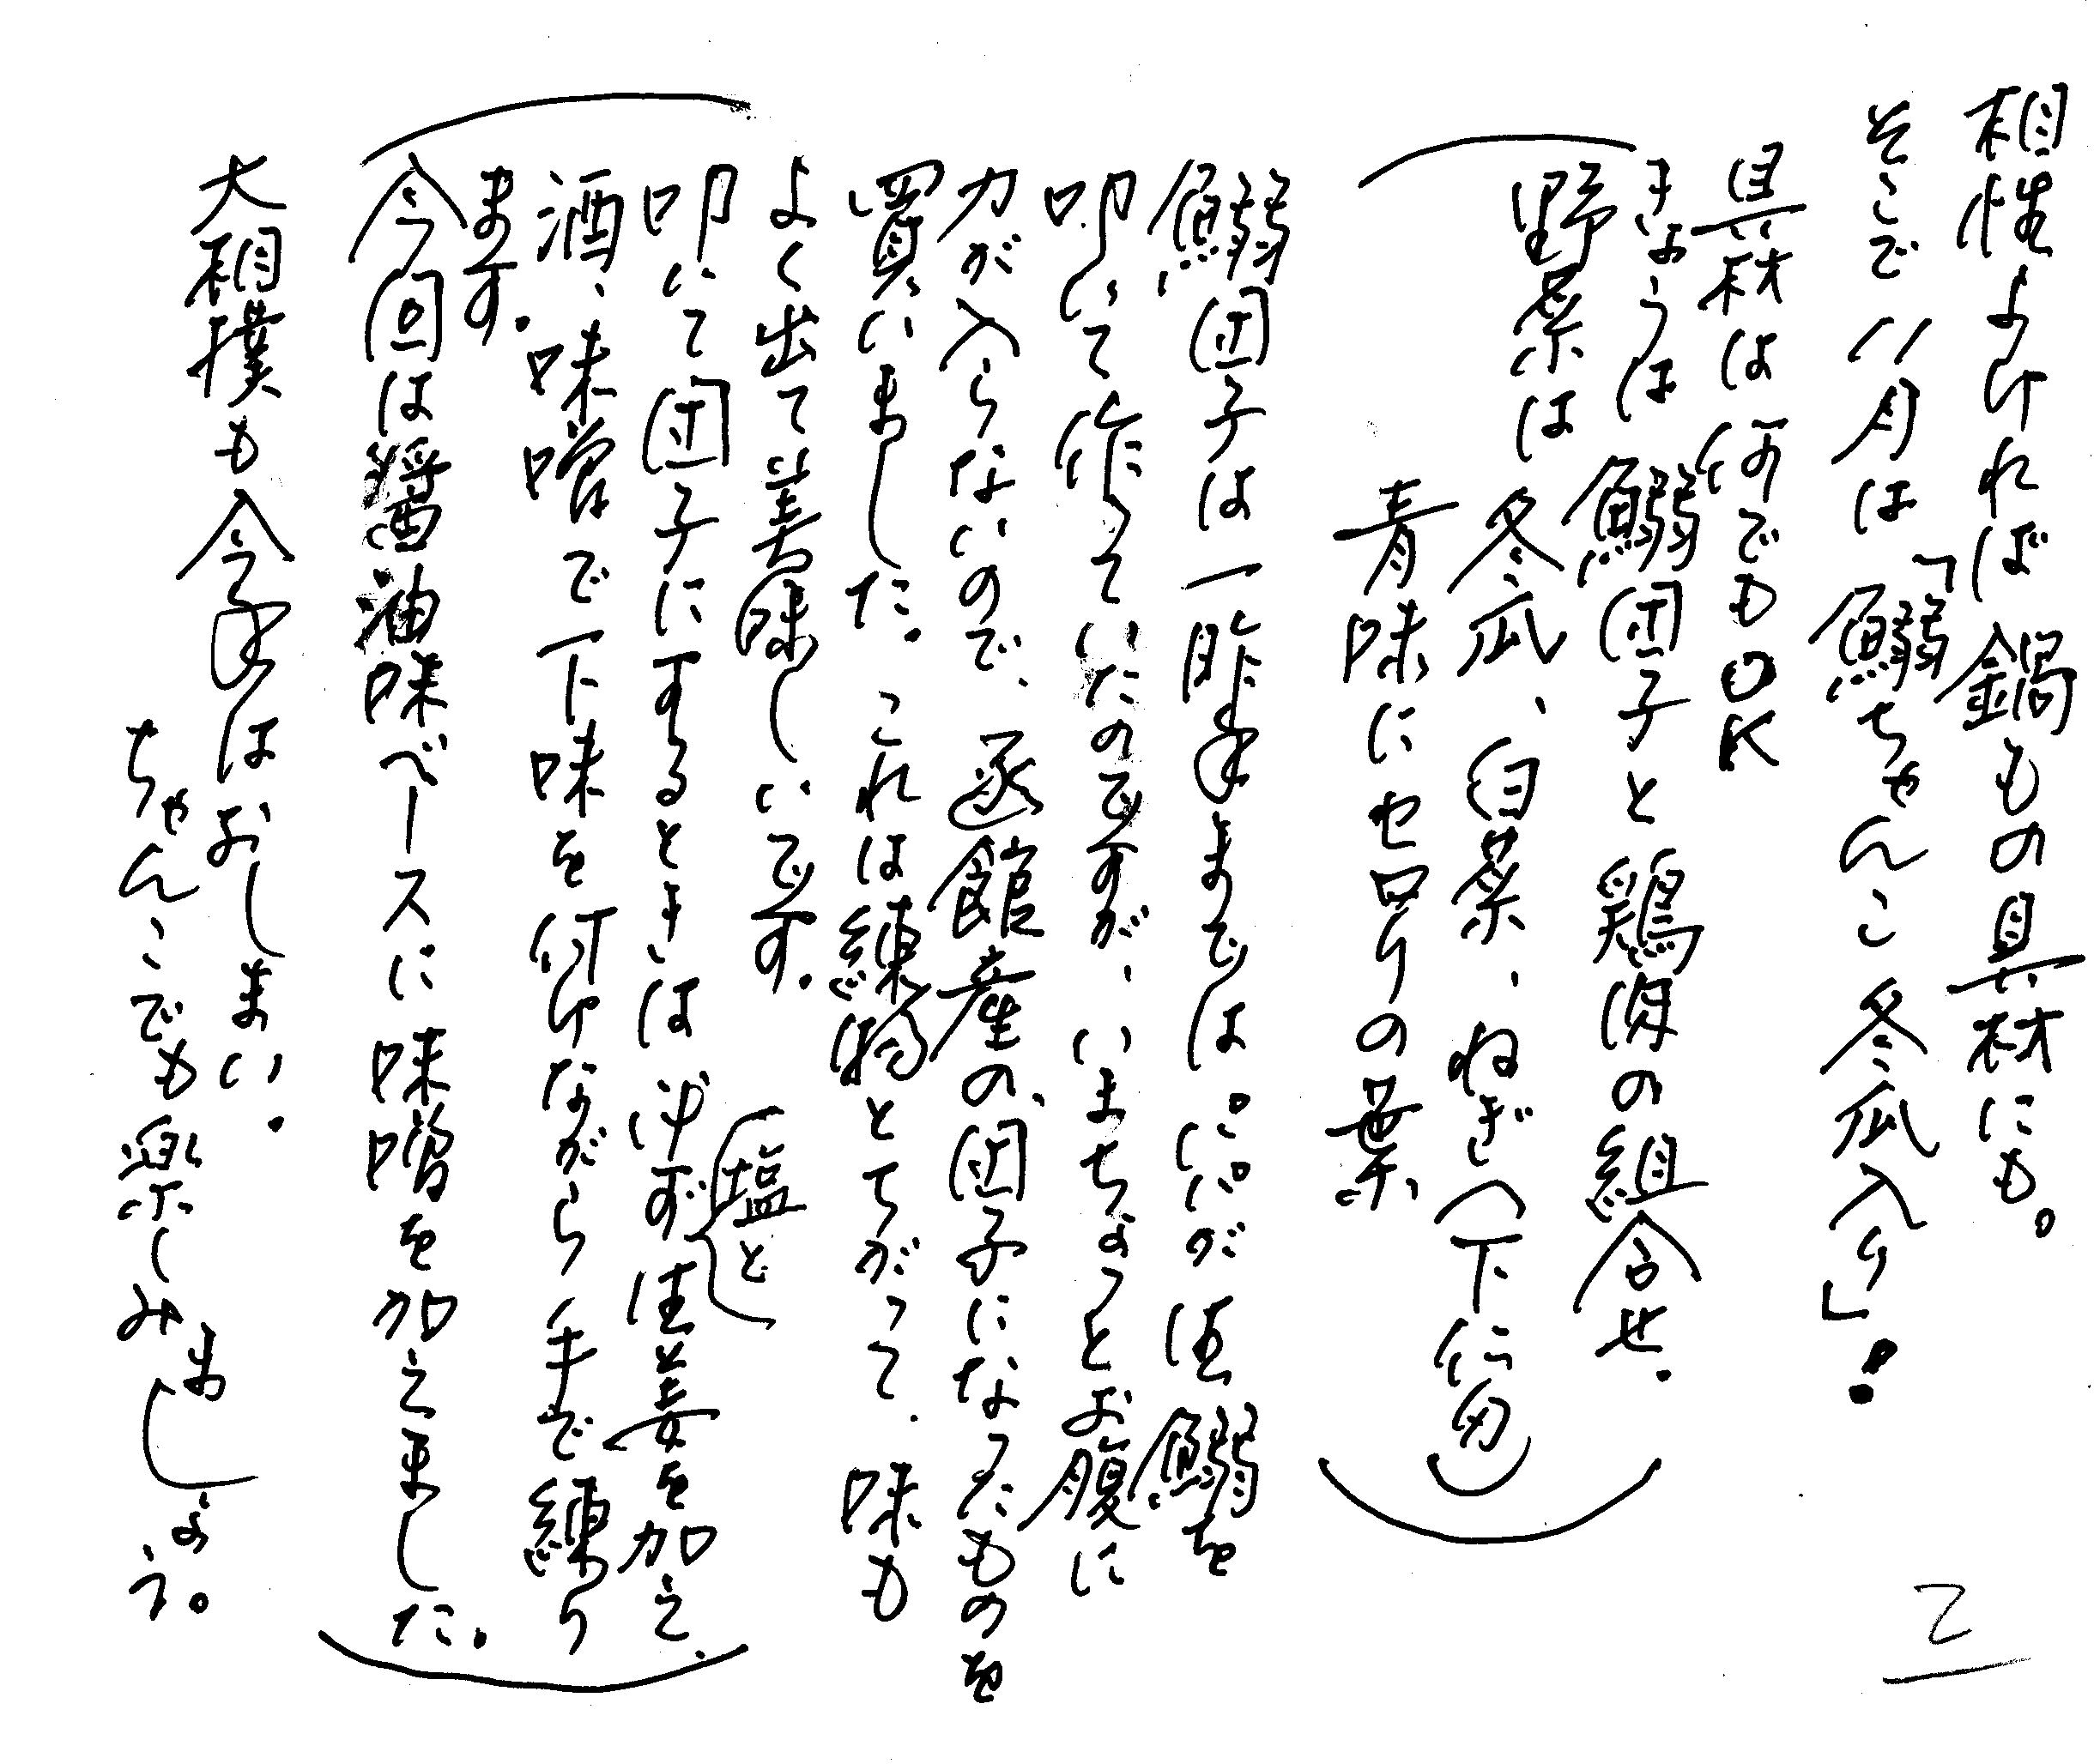 相性よければ鍋もの具材にも。
そこで11月は「鰯ちゃんこ冬瓜入り」!
具材は何でもOK
きょうは鰯団子と鶏肉の組合せ.
野菜は冬瓜、白菜、ねぎ(下仁田)
青味にセロリの葉
鰯団子は一昨年まではパパが活鰯を
叩いて作っていたのですが、いまちょっとお腹に
力が入らないので、函館産の、団子になったものを
買いました。これは練物とちがって、味も
よく出て美味しいです。
叩いて団子にするときは必ず(塩と)生姜を加え、
酒、味噌で下味を付けながら手で練り
ます。
今回は醤油味ベースに味噌を加えました。
大相撲も今年はおしまい。
ちゃんこでも楽しみましょう。
2